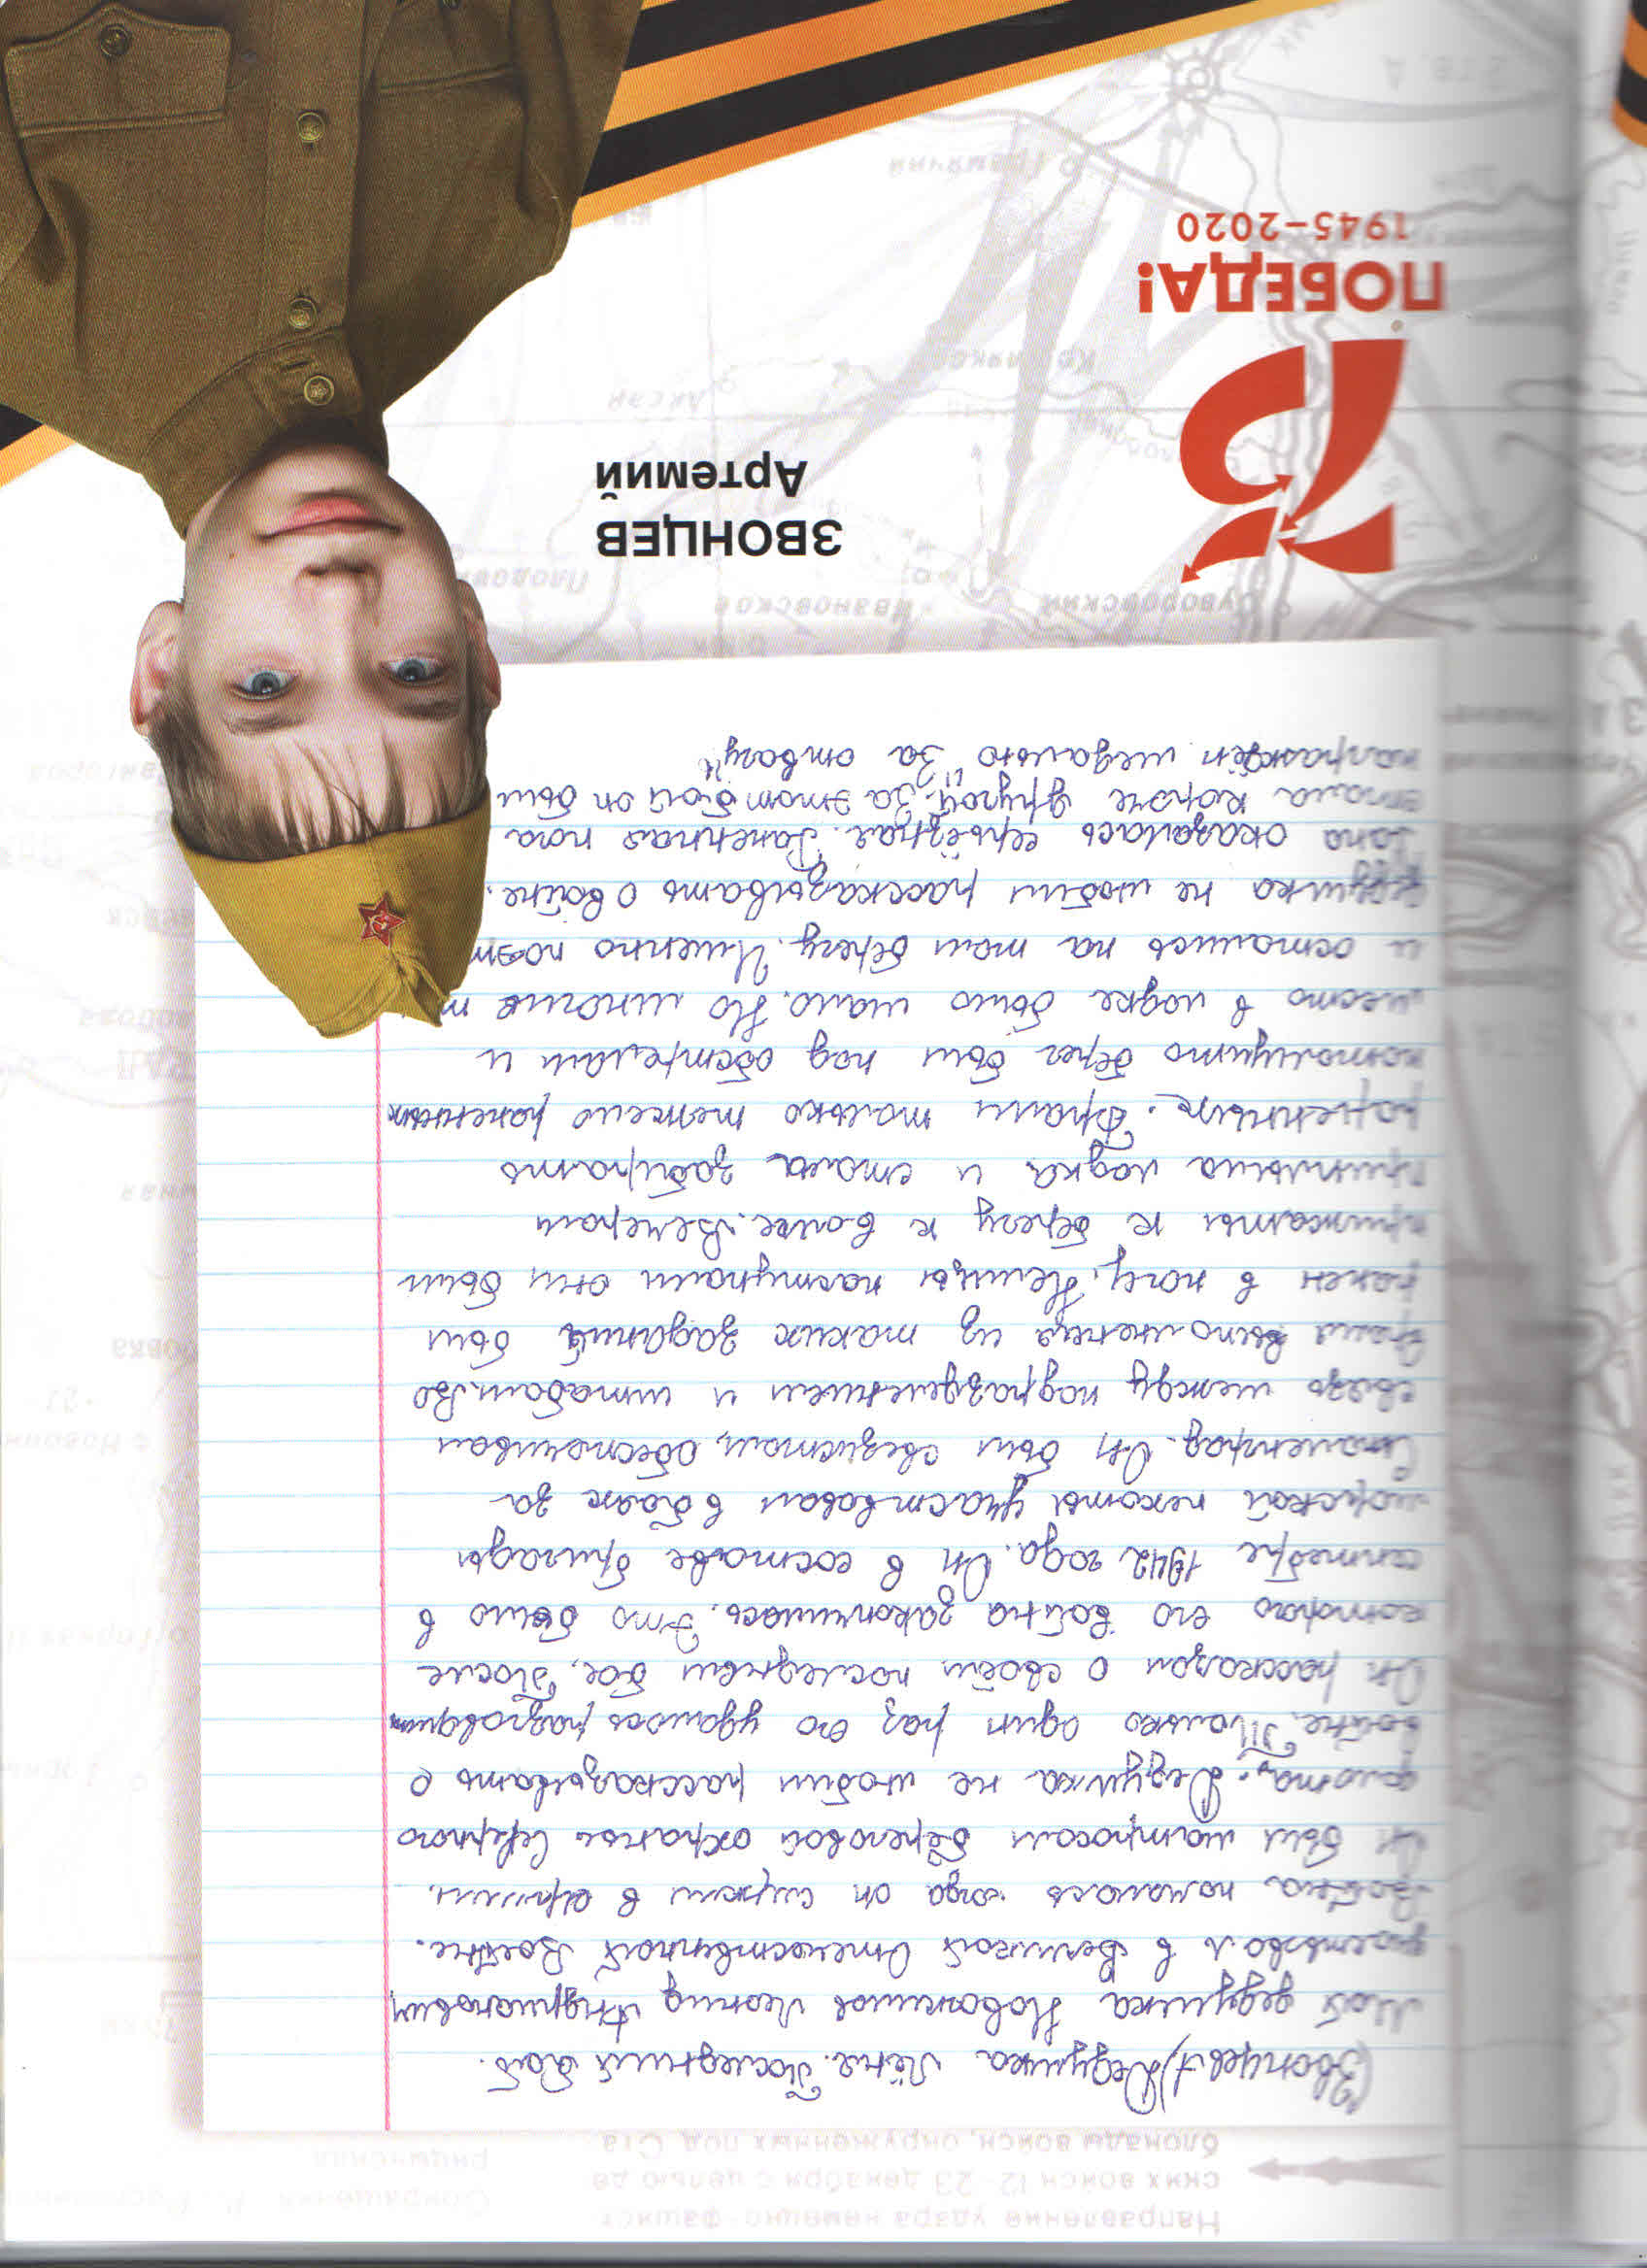 Направление удара немецко-фашист
ских войск 12-23 декабря с целью де
блокады войск, окруженных под Ста
(Звонцев А) Дедушка Лёня. Последний бой.
Мой дедушка Новожилов Леонид Андрианович
участвовал в Великой Отечественной Войне.
Война началась когда он служил в армии.
Он был матросом береговой охраны Северного
флота. Дедушка не любил рассказывать о
войне. Только один раз его удалось разговорить
Он рассказал о своём последнем бое. После
которого его война закончилась. Это было в
сентебре 1942 года. Он в составе бригады
морской пехоты участвовал в боях за
Сталенград. Он был свезистом, обеспечивал
связь между подразделением и штабом. Во
время выполнения из таких заданий был
ранен в ногу. Немцы наступали они были
прижаты к берегу к волге. Вечером
приплыла лодка и стала забирать
раненных. Брали только тежело раненных
потомушто берег был под обстрелам и
место в лодке было мало. Но многие т
и остались на том берегу. Именно поэт
дедушка не любил рассказывать о войне.
Рана оказалась серьёзная. Раненная нога
стала короче другой. За этот бой он был
награждён медалью "За отвагу"
Суворовский
Ивановское
ЗВОНЦЕВ
Артемий
75
Аксай
ПОБЕДА!
1945–2020
Гремячий